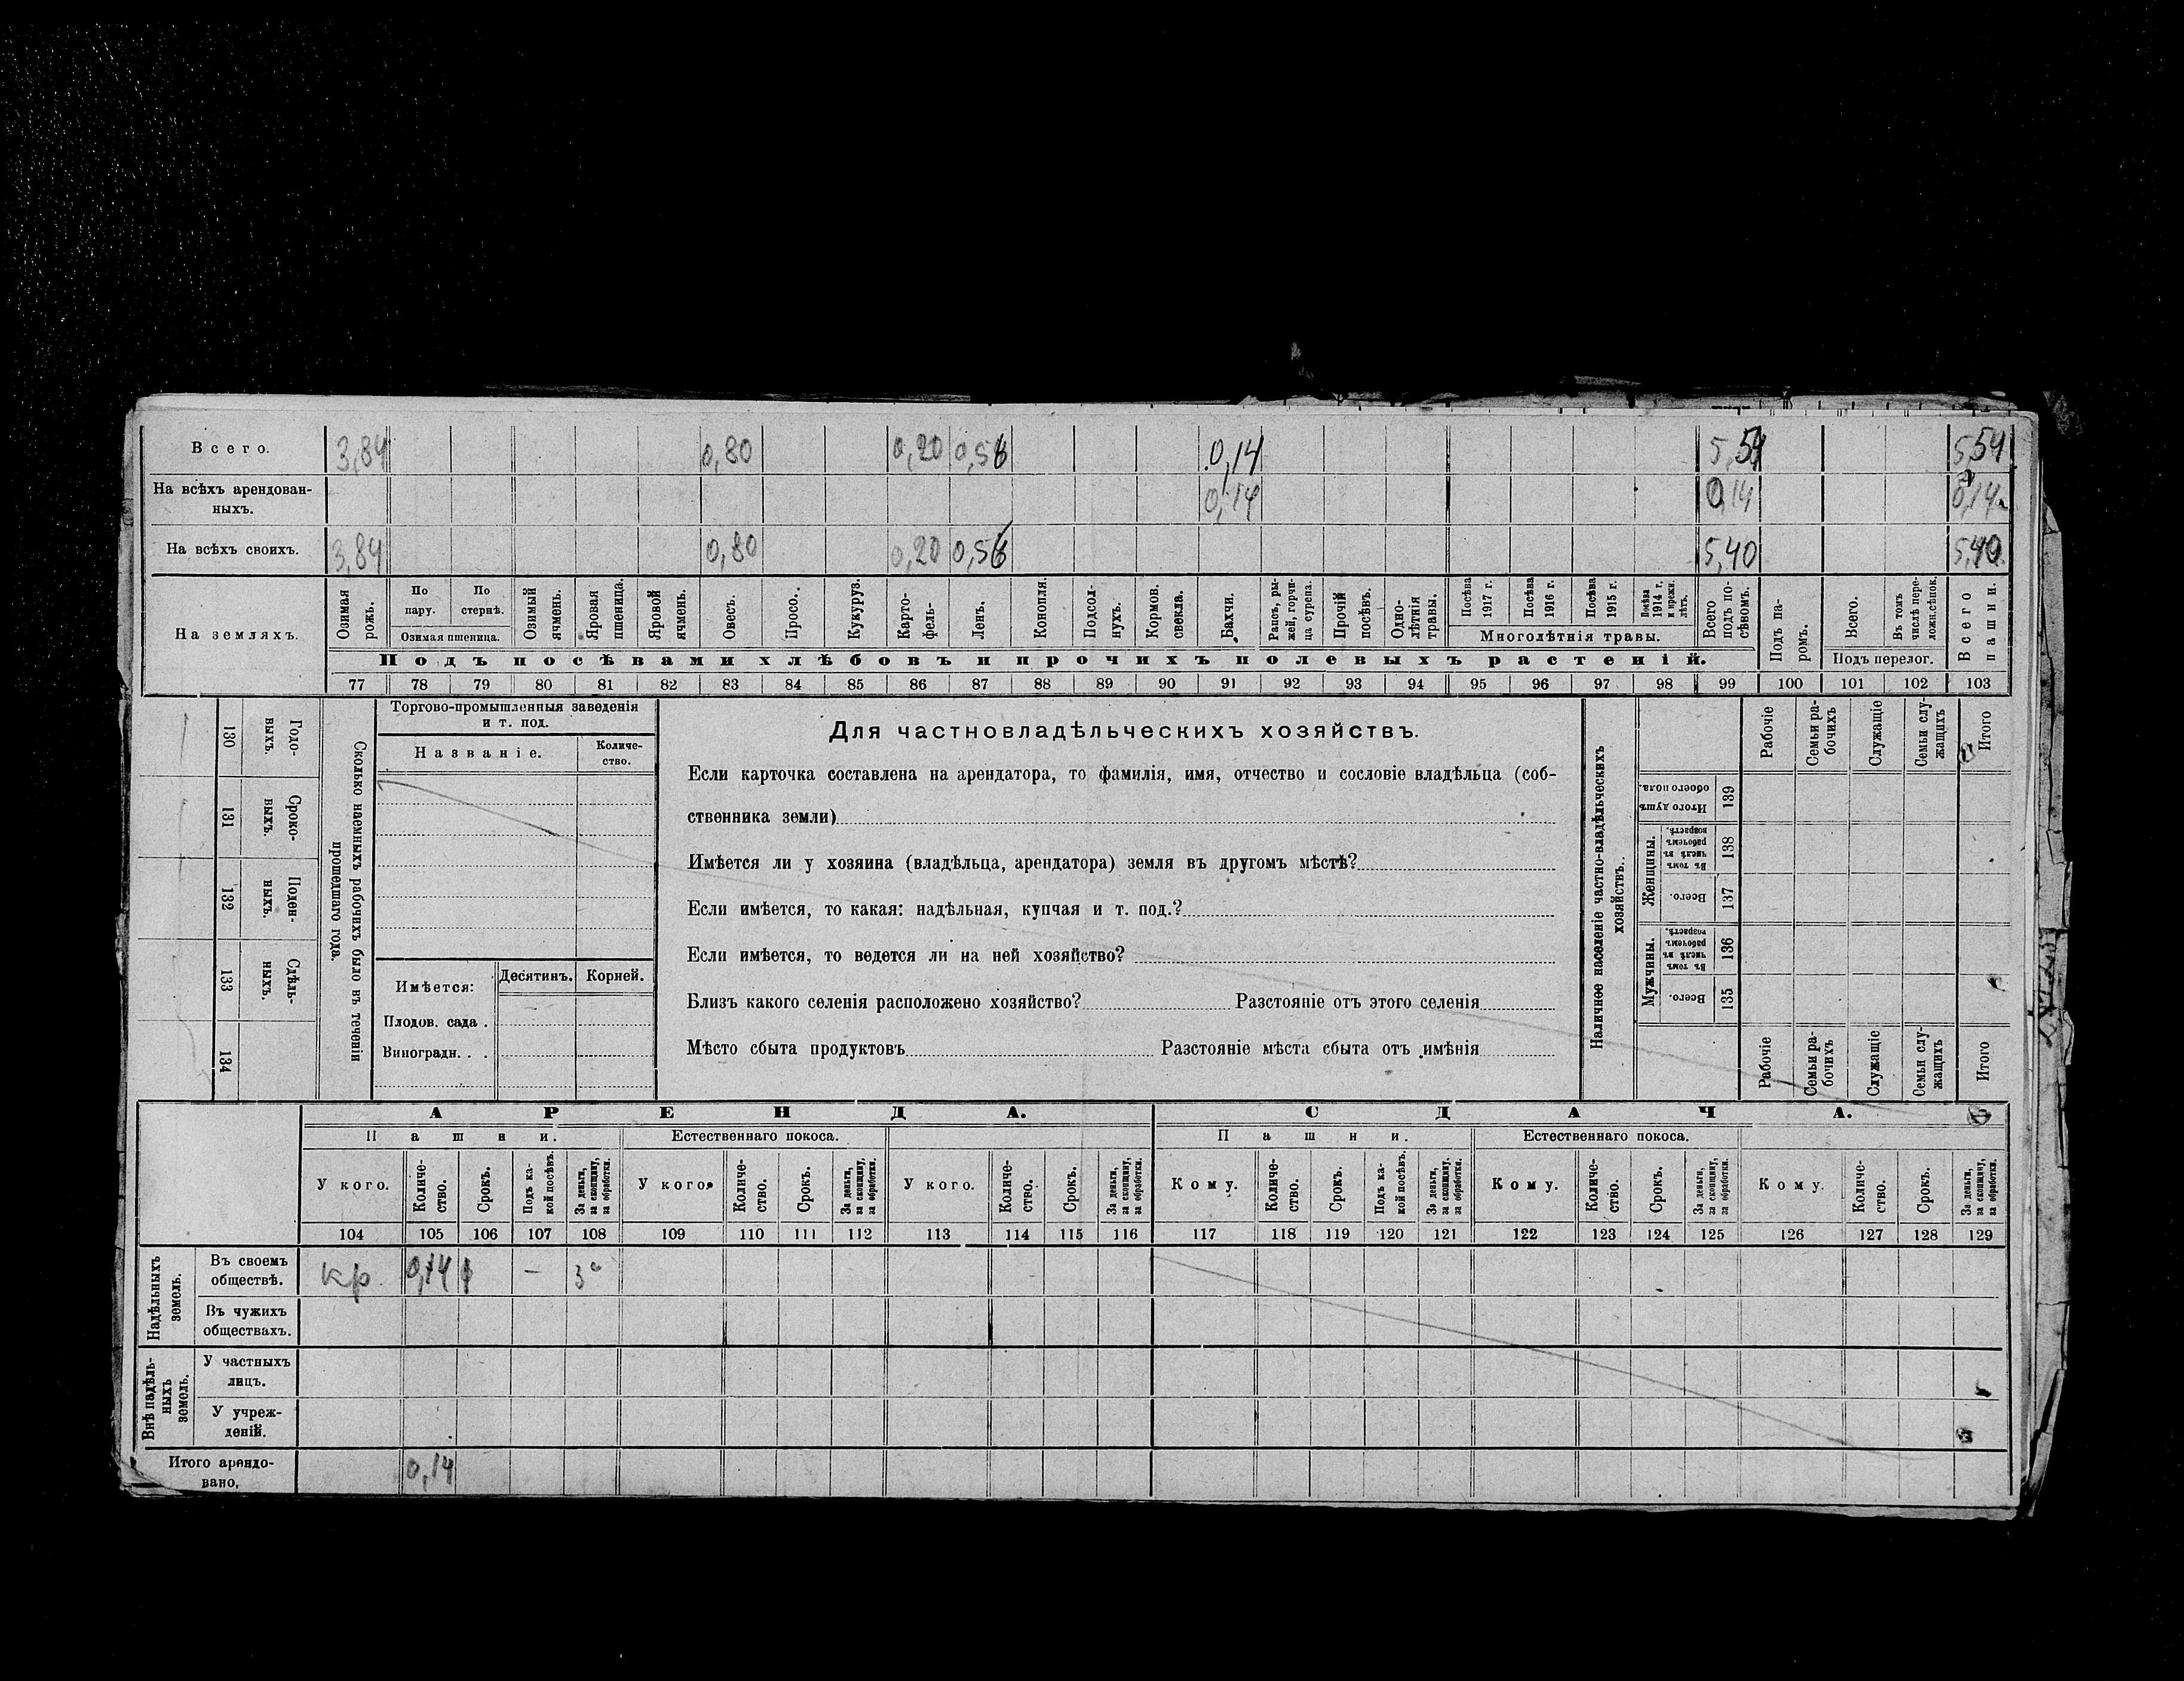 Всего. 3,84 0,80 0,20 0,56 0,14 5,54 5,54
На всѣхъ арендован-
ныхъ. 0,14 0,14 0,14
На всѣхъ своихъ. 3,84 0,80 0,20 0,56 5,40 5,40
На земляхъ.
Озимая рожь.
По пару.
По стернѣ.
Озимая пшеница.
Озимый ячмень.
Яровая пшеница.
Яровой ячмень.
Овесъ.
Просо.
Кукуруз.
Карто-
фель-
Ленъ.
Конопля.
Подсол-
нухъ.
Кормов.
свекла.
Бахчи.
Рапсъ, ры-
жей, горчи-
ца сурепа.
Прочій
посѣвъ.
Одно-
лѣтнія
травы.
Посѣва
1917 г.
Посѣва
1916 г.
Посѣва
1915 г.
Посѣва
1914 г.
и прежн.
лѣтъ.
Многолѣтнія травы.
Всего
подъ по-
сѣвомъ.
Подъ па-
ромъ.
Всего.
Въ томъ
числѣ пере-
ложн.сѣнок.
Подъ перелог.
Всего
пашни.
Подъ посѣвами хлѣбовъ и прочихъ полевыхъ растеній.
77 78 79 80 81 82 83 84 85 86 87 88 89 90 91 92 93 94 95 96 97 98 99 100 101 102 103
130 Годо-
выхъ.
131 Сроко-
выхъ.
132 Поден-
ныхъ.
133 Сдѣль-
ныхъ.
134
Сколько наемныхъ рабочихъ было въ теченіи
прошедшаго года.
Торгово-промышленныя заведенія
и т. под.
Названіе.
Количе-
ство.
Имѣется:
Десятинъ. Корней.
Плодов. сада .
Виноградн. . .
Для частновладѣльческихъ хозяйствъ.
Если карточка составлена на арендатора, то фамилія, имя, отчество и сословіе владѣльца (соб-
ственника земли)
Имѣется ли у хозяина (владѣльца, арендатора) земля въ другомъ мѣстѣ?
Если имѣется, то какая: надѣльная, купчая и т. под.?
Если имѣется, то ведется ли на ней хозяйство?
Близъ какого селенія расположено хозяйство? Разстояніе отъ этого селенія
Мѣсто сбыта продуктовъ Разстояніе мѣста сбыта отъ имѣнія
Наличное населеніе частно-владѣльческихъ
хозяйствъ.
Рабочіе
Семьи ра-
бочихъ
Служащіе
Семьи слу-
жащихъ
Итого
Итого душъ
обоего пола.
139
Женщины.
Въ томъ
числѣ въ
рабочемъ
возрастѣ.
138
Всего.
137
Мужчины.
Въ томъ
числѣ въ
рабочемъ
возрастѣ.
136
Всего.
135
Рабочіе
Семьи ра-
бочихъ
Служащіе
Семьи слу-
жащихъ
Итого
АРЕНДА. СДАЧА.
Пашни. Естественнаго покоса. Пашни. Естественнаго покоса.
У кого.
Количе-
ство.
Срокъ.
Подъ ка-
кой посѣвъ.
За деньги,
за скопщину,
за обработки.
У кого.
Количе-
ство.
Срокъ.
За деньги,
за скопщину,
за обработки.
У кого.
Количе-
ство.
Срокъ.
За деньги,
за скопщину,
за обработки.
Кому.
Количе-
ство.
Срокъ.
Подъ ка-
кой посѣвъ.
За деньги,
за скопщину,
за обработки.
Кому.
Количе-
ство.
Срокъ.
За деньги,
за скопщину,
за обработки.
Кому.
Количе-
ство.
Срокъ.
За деньги,
за скопщину,
за обработки.
104 105 106 107 108 109 110 111 112 113 114 115 116 117 118 119 120 121 122 123 124 125 126 127 128 129
Надѣльныхъ
земель.
Въ своемъ
обществѣ. кр. 0,14 — 3
Въ чужихъ
обществахъ.
Внѣ надѣль-
ныхъ
земель.
У частныхъ
лицъ.
У учреж-
деній.
Итого арендо-
вано. 0,14